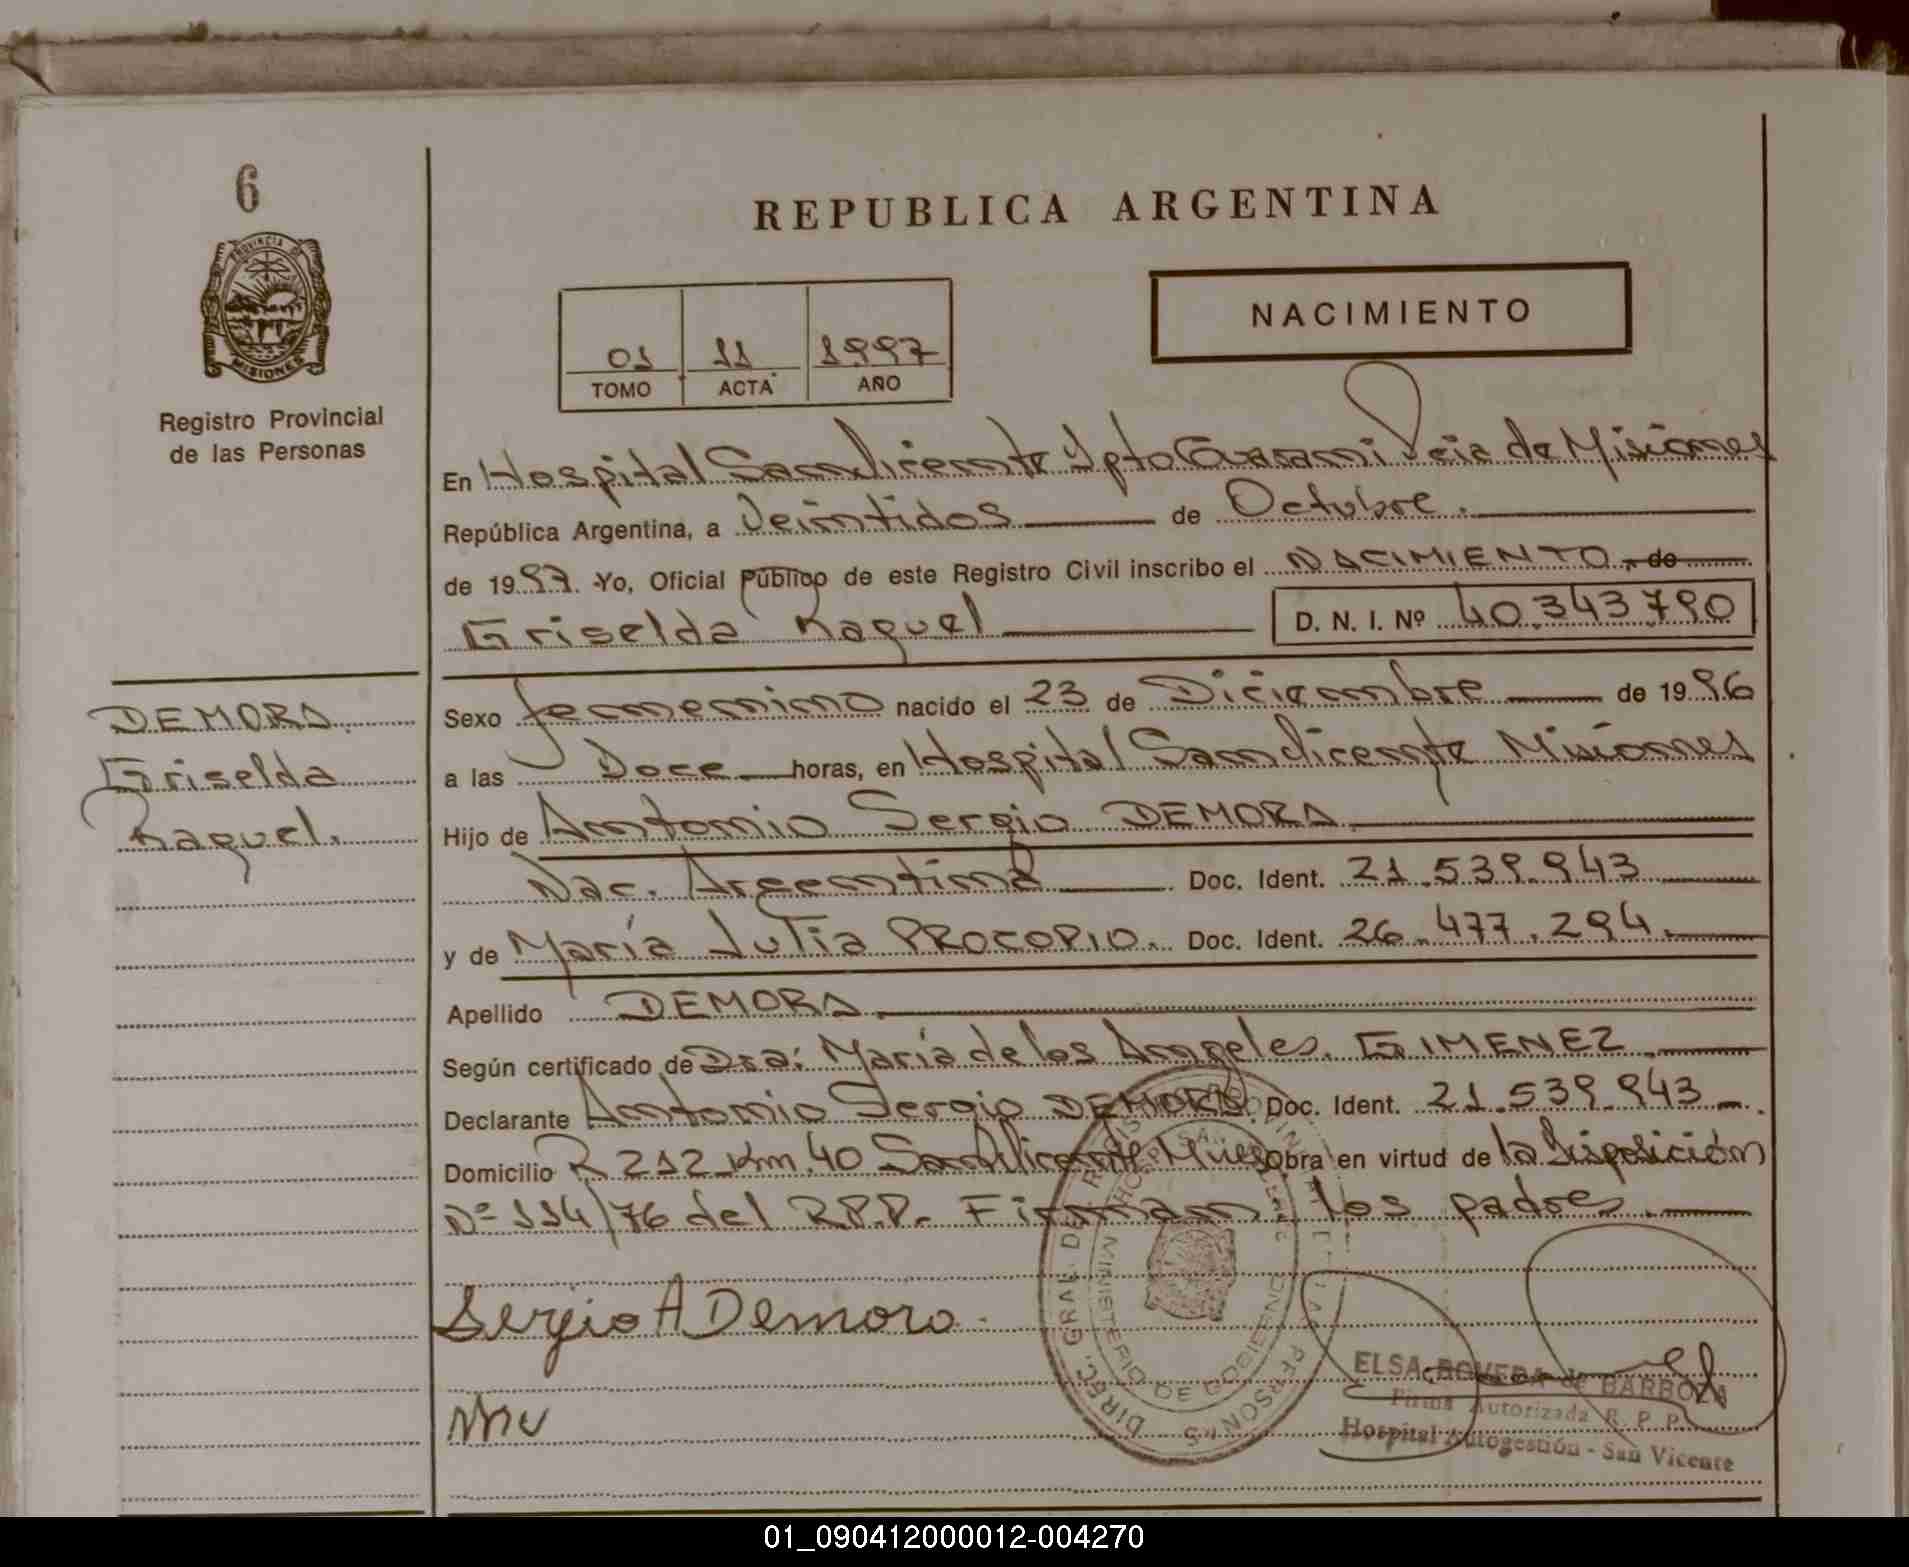 6
PROVINCIA DE
MISIONES
Registro Provincial
de las Personas
REPUBLICA ARGENTINA
01 11 1997
TOMO ACTA AÑO
NACIMIENTO
En Hospital San Vicente Dpto Guarani Pcia de Misiones
República Argentina, a Veintidos de Octubre.
de 1997. Yo, Oficial Público de este Registro Civil inscribo el NACIMIENTO. de
Griselda Raquel D. N. I. Nº 40.343.790
DEMORA.
Griselda
Raquel.
Sexo femenino nacido el 23 de Diciembre de 1996
a las Doce horas, en Hospital San Vicente Misiones
Hijo de Antonio Sergio DEMORA
Nac. Argentina Doc. Ident. 21.539.943
y de María Julia PROCOPIO. Doc. Ident. 26.477.294.
Apellido DEMORA.
Según certificado de Dra: María de los Angeles. GIMENEZ.
Declarante Antonio Sergio DEMORA. Doc. Ident. 21.539.943
Domicilio R 212 Km. 40 San Vicente Mnes Obra en virtud de la Disposición
Nº 114/76 del R.P.P. Firman los padres.
Sergio A Demora
DIREC. GRAL. DEL REGIST PROVINCIAL PERSONAS
MINISTERIO DE GOBIERNO
HOSP. SAN VICENTE
ELSA BOVEDA de BARBOZA
Firma Autorizada R. P. P.
Hospital Autogestión - San Vicente
01_090412000012-004270